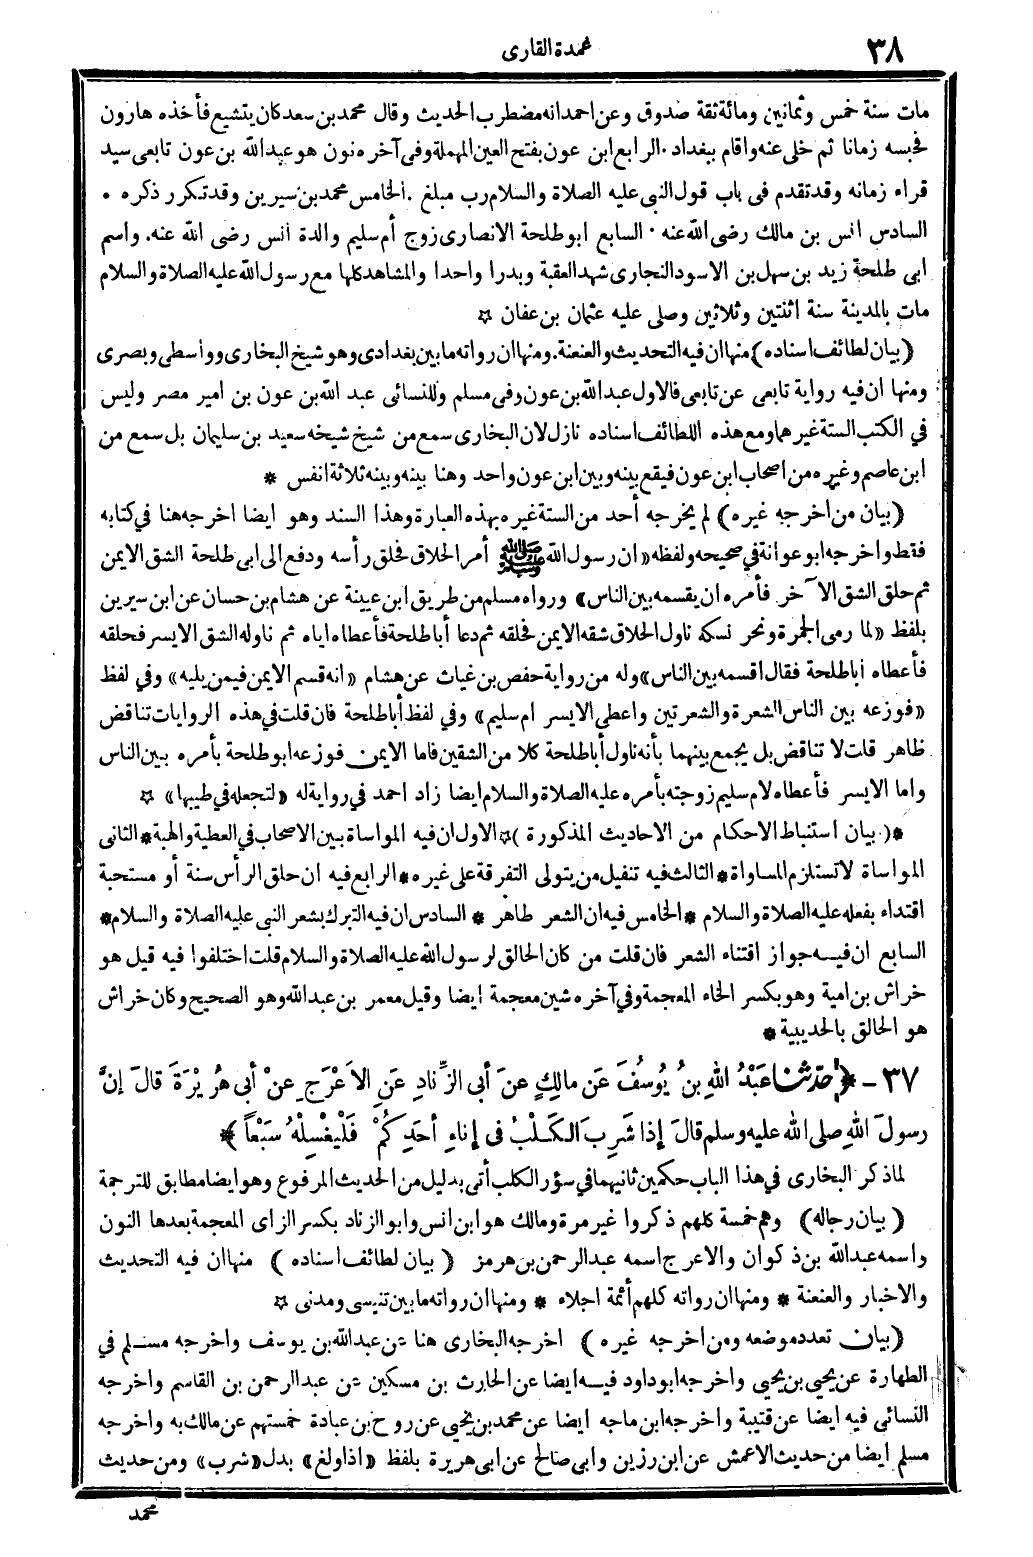 ٣٨
عمدة القارى
مات سنة خمس وثمانين ومائة ثقة صدوق وعن احمدانه مضطرب الحديث وقال محمد بن سعد كان يتشيع فأخذه هارون
فحبسه زمانا ثم خلى عنه واقام ببغداد . الرابع ابن عون بفتح العين المهملة وفى آخره نون هو عبد الله بن عون تابعى سيد
قراء زمانه وقد تقدم فى باب قول النبى عليه الصلاة والسلام رب مبلغ . الخامس محمد بن سيرين وقد تكرر ذكره .
السادس انس بن مالك رضى الله عنه . السابع ابو طلحة الانصارى زوج أم سليم والدة انس رضى الله عنه. واسم
ابى طلحة زيد بن سهل بن الاسود النجارى شهد العقبة وبدرا واحدا والمشاهد كلها مع رسول الله عليه الصلاة والسلام
مات بالمدينة سنة اثنتين وثلاثين وصلى عليه عثمان بن عفان ☆
(بيان لطائف اسناده) منها ان فيه التحديث والعنعنة. ومنها ان رواته ما بين بغدادى وهو شيخ البخارى وواسطى وبصرى
ومنها ان فيه رواية تابعى عن تابعى فالاول عبد الله بن عون وفى مسلم وللنسائى عبد الله بن عون بن امير مصر وليس
في الكتب الستة غيرهما ومع هذه اللطائف اسناده نازل لان البخارى سمع من شيخ شيخه سعيد بن سليمان بل سمع من
ابن عاصم وغيره من اصحاب ابن عون فيقع بينه وبين ابن عون واحد وهنا بينه وبينه ثلاثة انفس *
(بيان من اخرجه غيره) لم يخرجه أحد من الستة غيره بهذه العبارة وهذا السند وهو ايضا اخرجه هنا في كتابه
فقط واخرجه ابو عوانة في صحيحه ولفظه «ان رسول الله ﷺ أمر الحلاق فحلق رأسه ودفع الى ابى طلحة الشق الايمن
ثم حلق الشق الآخر فأمره ان يقسمه بين الناس» ورواه مسلم من طريق ابن عيينة عن هشام بن حسان عن ابن سيرين
بلفظ «لما رمى الجمرة ونحر نسكه ناول الحلاق شقه الايمن فحلقه ثم دعا أبا طلحة فأعطاه اياه ثم ناوله الشق الايسر فحلقه
فأعطاه ابا طلحة فقال اقسمه بين الناس» وله من رواية حفص بن غياث عن هشام «انه قسم الايمن فيمن يليه» وفي لفظ
«فوزعه بين الناس الشعرة والشعرتين واعطى الايسر ام سليم» وفي لفظ أبا طلحة فان قلت في هذه الروايات تناقض
ظاهر قلت لا تناقض بل يجمع بينهما بأنه ناول أبا طلحة كلا من الشقين فاما الايمن فوزعه ابو طلحة بأمره بين الناس
واما الايسر فأعطاه لام سليم زوجته بأمره عليه الصلاة والسلام ايضا زاد احمد في رواية له «لتجعله في طيبها» ☆
*( بيان استنباط الاحكام من الاحاديث المذكورة )☆ الاول ان فيه المواساة بين الاصحاب في العطية والهبة * الثانى
المواساة لا تستلزم المساواة * الثالث فيه تنفيل من يتولى التفرقة على غيره * الرابع فيه ان حلق الرأس سنة أو مستحبة
اقتداء بفعله عليه الصلاة والسلام * الخامس فيه ان الشعر طاهر * السادس ان فيه التبرك بشعر النبى عليه الصلاة والسلام *
السابع ان فيه جواز اقتناء الشعر فان قلت من كان الحالق لرسول الله عليه الصلاة والسلام قلت اختلفوا فيه قيل هو
خراش بن امية وهو بكسر الخاء المعجمة وفي آخره شين معجمة ايضا وقيل معمر بن عبد الله وهو الصحيح وكان خراش
هو الحالق بالحديبية *
٣٧ - ﴿حَدَّثَنَا عَبْدُ اللهِ بنُ يُوسُفَ عَن مالِكٍ عنَ أبى الزِّنادِ عَنِ الأعْرَجِ عنْ أبى هُرَيْرَةَ قالَ إنَّ
رسولَ اللهِ صلى الله عليه وسلم قالَ إذَا شَرِبَ الكَلْبُ فى إناءِ أحَدِكُمْ فَلْيَغْسِلْهُ سَبْعاً﴾
لما ذكر البخارى في هذا الباب حكمين ثانيهما في سؤر الكلب أتى بدليل من الحديث المرفوع وهو ايضا مطابق للترجمة
( بيان رجاله ) وهم خمسة كلهم ذكروا غير مرة ومالك هو ابن انس وابو الزناد بكسر الزاى المعجمة بعدها النون
واسمه عبد الله بن ذكوان والاعرج اسمه عبد الرحمن بن هرمز ( بيان لطائف اسناده ) منها ان فيه التحديث
والاخبار والعنعنة * ومنها ان رواته كلهم أئمة اجلاء * ومنها ان رواته ما بين تنيسى ومدنى ☆
(بيان تعدد موضعه ومن اخرجه غيره) اخرجه البخارى هنا عن عبد الله بن يوسف واخرجه مسلم في
الطهارة عن يحيى بن يحيى واخرجه ابو داود فيه ايضا عن الحارث بن مسكين عن عبد الرحمن بن القاسم واخرجه
النسائى فيه ايضا عن قتيبة واخرجه ابن ماجه ايضا عن محمد بن يحيى عن روح بن عبادة خمستهم عن مالك به واخرجه
مسلم ايضا من حديث الاعمش عن ابن رزين وابى صالح عن ابى هريرة بلفظ «اذا ولغ» بدل «شرب» ومن حديث
محمد